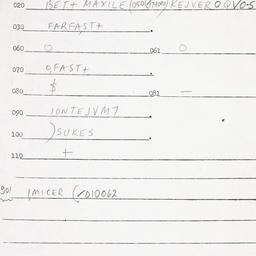 020 BET+ MAXILE
030 FARFAST+
060 O 061 O
070 O,FAST+
080 $ 081 —
090 JONTEJVM7
100 )SUKES
110 +
901 IMICER (/010062